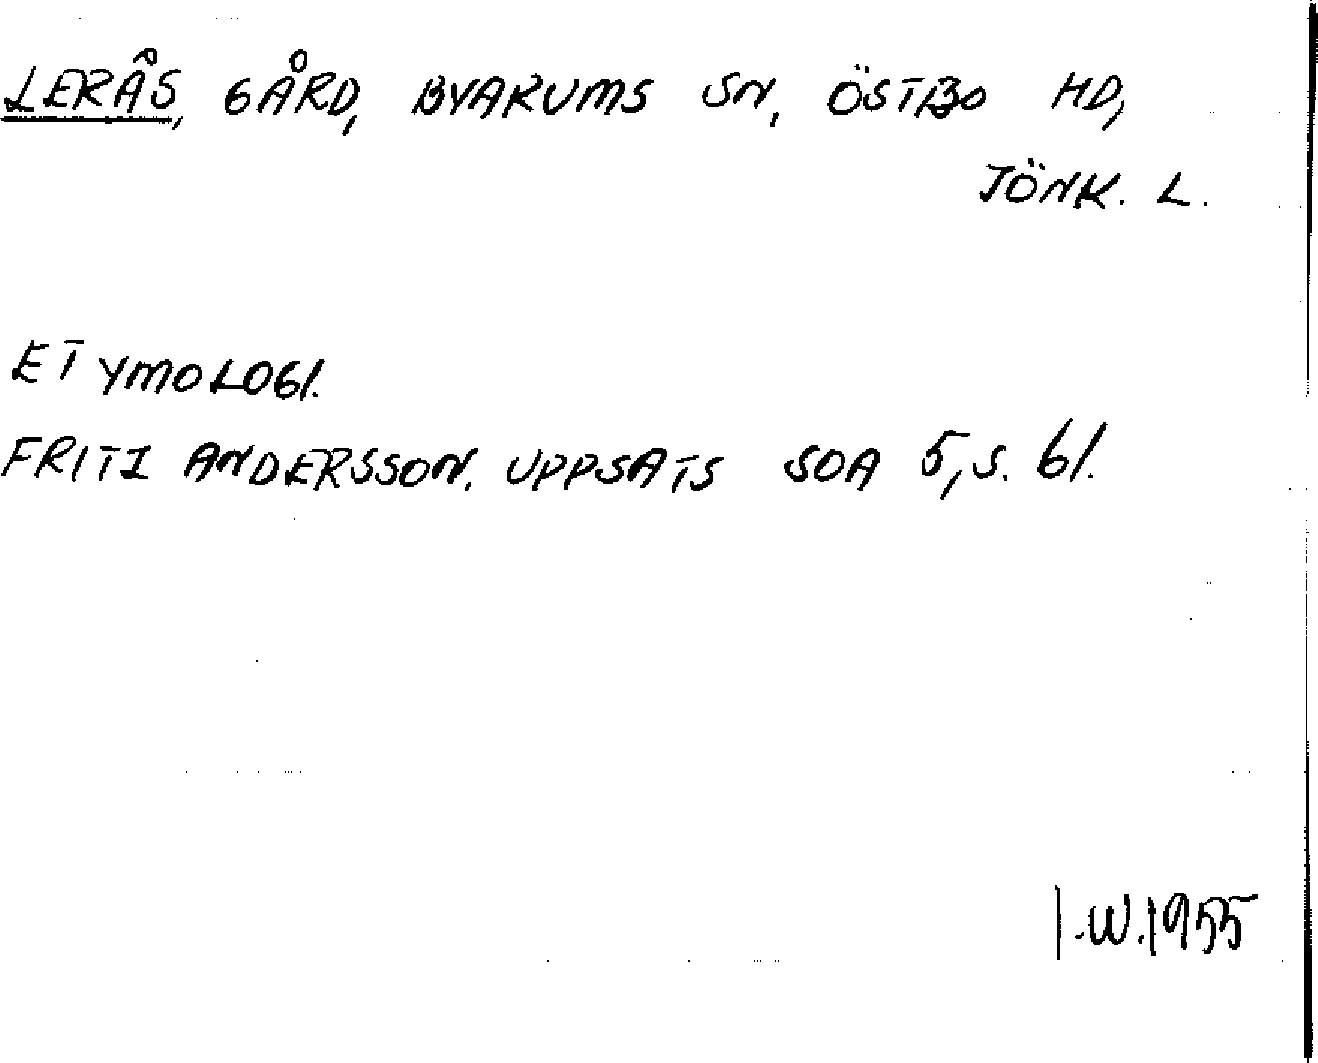 LERÅS, GÅRD, BYARUMS SN, ÖSTBO HD,
JÖNK. L.
ETYMOLOGI.
FRITZ ANDERSSON. UPPSATS SOA 5, S. 61.
I.W.1955